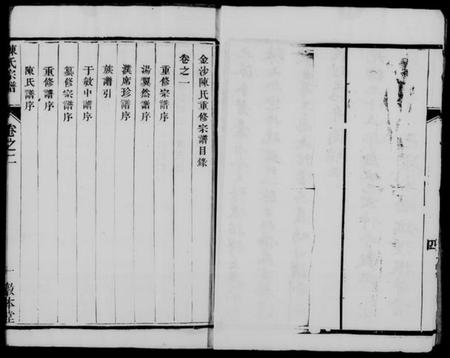 金沙陳氏重修宗譜目錄
卷之一
重修宗譜序
湯翼然譜序
濮席珍譜序
族譜引
于敏中譜序
纂修宗譜序
重修譜序
陳氏譜序
陳氏宗譜
卷之一
一
報本堂
四